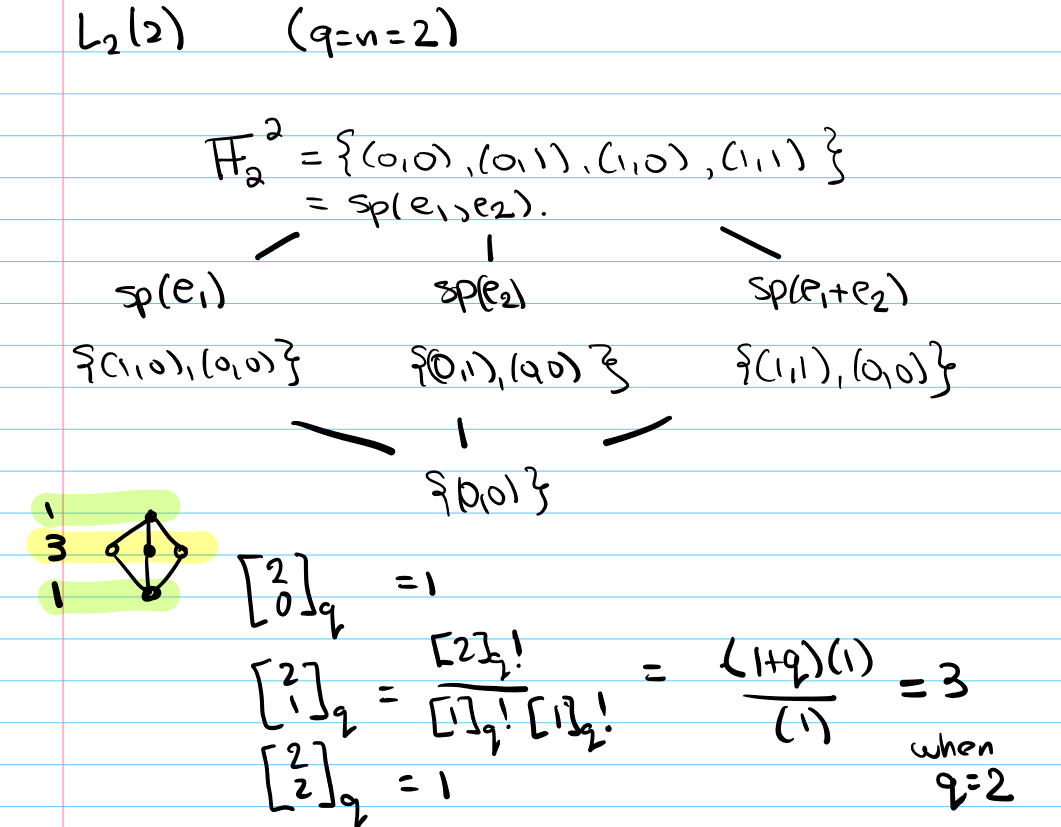 L₂(2) (q=n=2)
𝔽₂² = {(0,0), (0,1), (1,0), (1,1)}
= sp(e₁, e₂).
sp(e₁) sp(e₂) sp(e₁+e₂)
{(1,0), (0,0)} {(0,1), (0,0)} {(1,1), (0,0)}
{(0,0)}
1
3
1
[2 0]_q = 1
[2 1]_q = [2]_q! / [1]_q! [1]_q! = (1+q)(1) / (1) = 3
when
q=2
[2 2]_q = 1